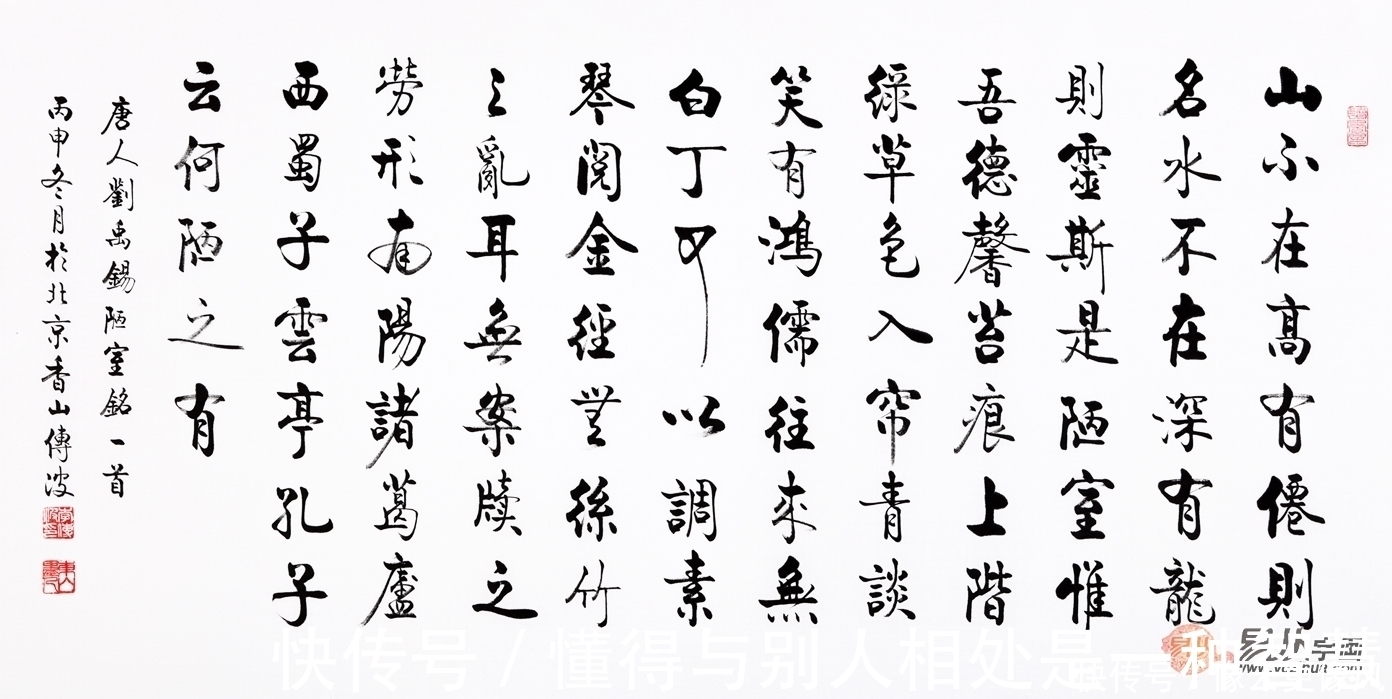 山不在高有僊則
名水不在深有龍
則靈斯是陋室惟
吾德馨苔痕上階
緑草色入帘青談
笑有鴻儒往來無
白丁可以調素
琴閱金經無絲竹
之亂耳無案牘之
勞形南陽諸葛廬
西蜀子雲亭孔子
云何陋之有
唐人劉禹錫陋室銘一首
丙申冬月於北京香山傳波
快传号 / 懂得与别人相处是一种智慧